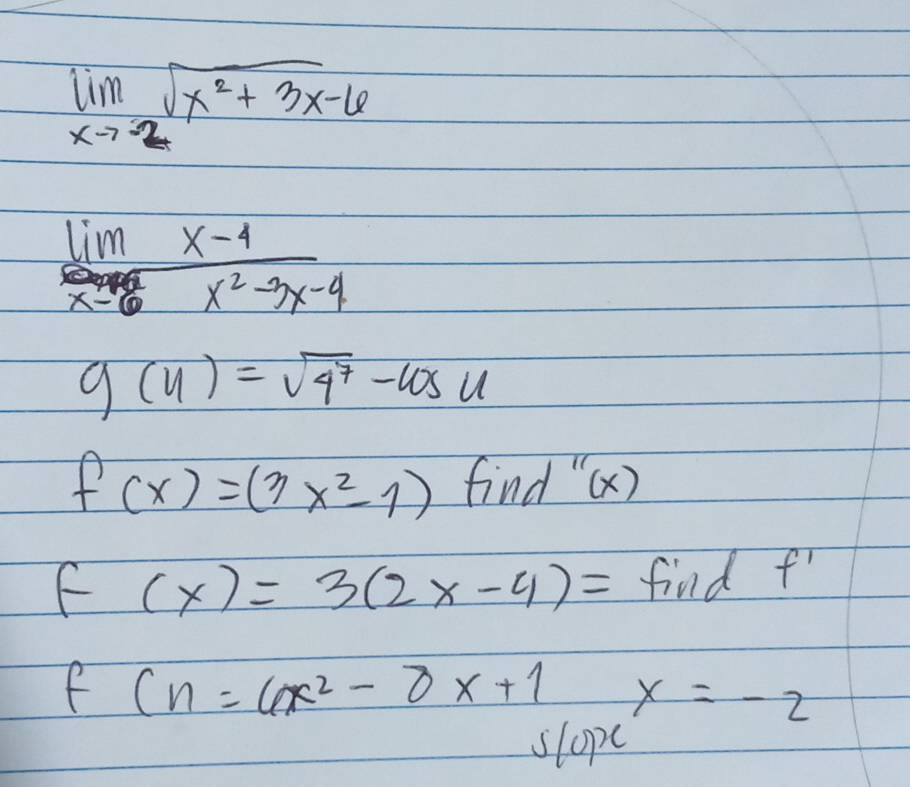 lim √x² + 3x-6
x→-2
lim x-4
x-6 x²-3x-4
g(u) = √4⁷ - cos u
f(x) = (3x²-1) find "(x)
f (x) = 3(2x-4) = find f'
f (n = 6x² - 8x+1 x = -2
slope